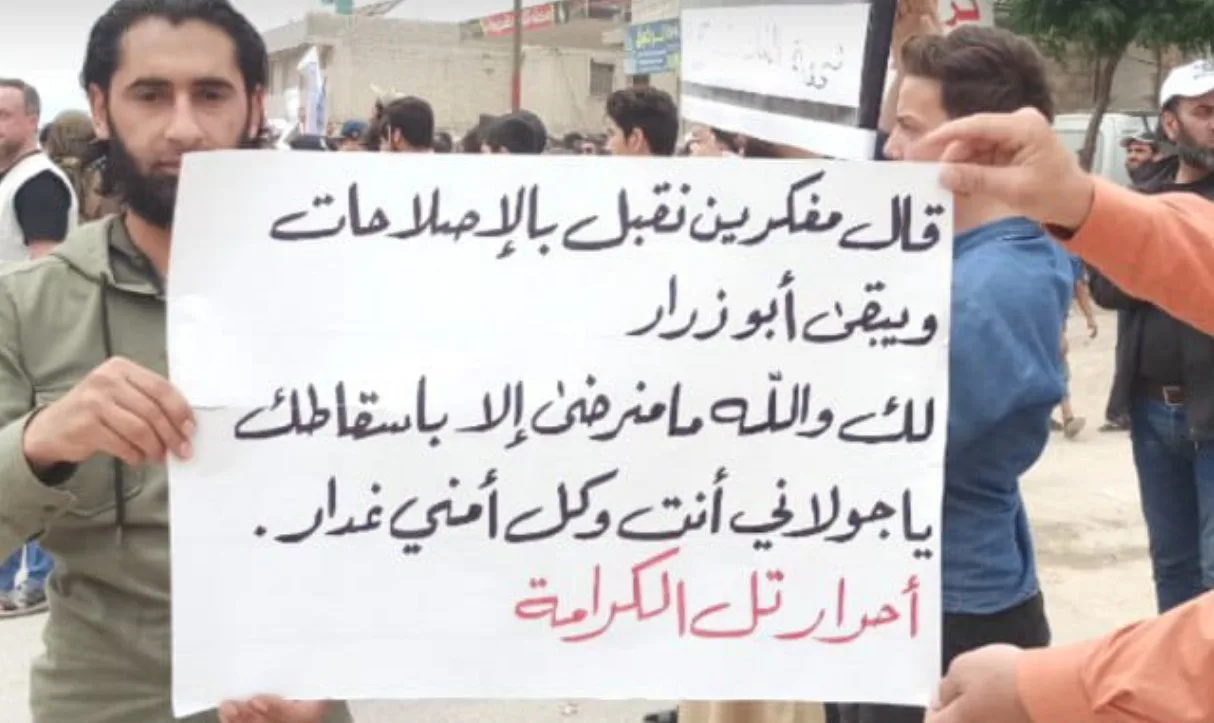 قال مفكرين نقبل بالإصلاحات
ويبقى أبو زرار
لك والله ما منرضى إلا باسقاطك
يا جولاني أنت وكل أمني غدار .
أحرار تل الكرامة